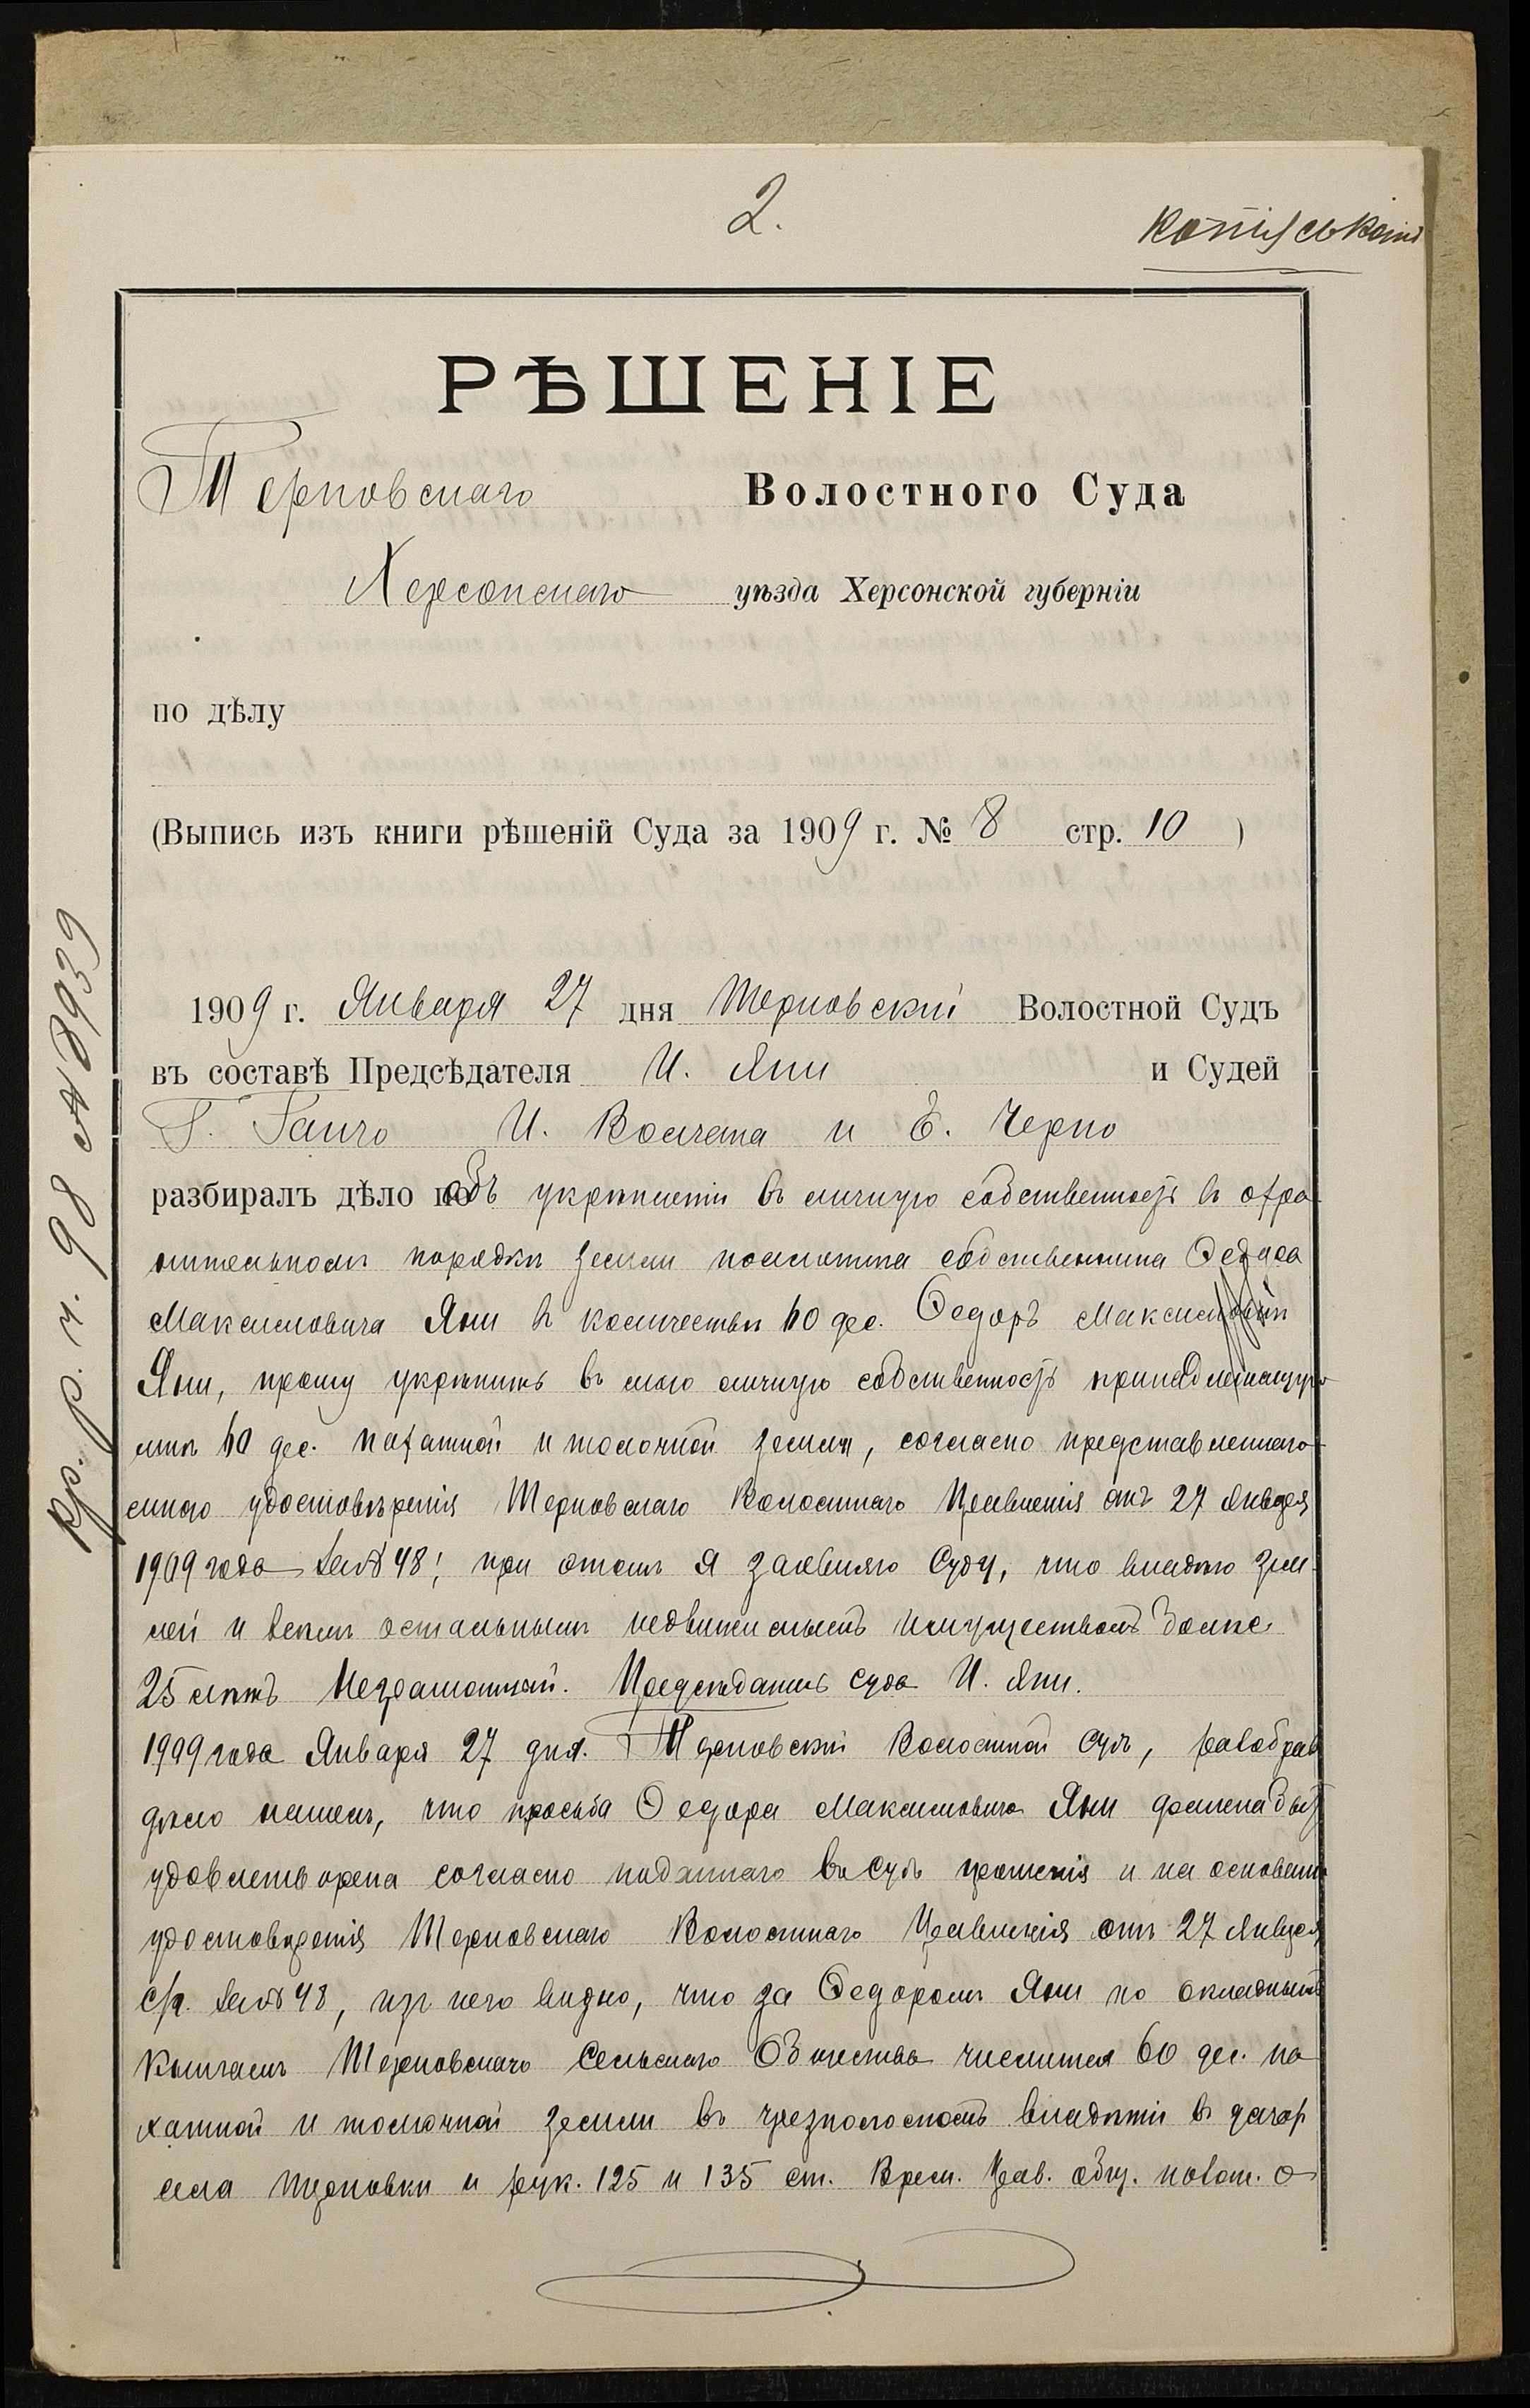 2.
РѢШЕНІЕ
Терновскаго Волостного Суда
Херсонскаго уѣзда Херсонской губерніи
по дѣлу
(Выпись изъ книги рѣшеній Суда за 1909 г. № 8 стр. 10 )
1909 г. Января 27 дня Терновскій Волостной Судъ
въ составѣ Предсѣдателя И. Яни и Судей
Г. Ганчо И. Волчана и Е. Черно
разбиралъ дѣло объ укрѣпленіи въ личную собственность въ охра-
нительномъ порядкѣ земли поселянина собственника Федора
Максимовича Яни въ количествѣ 60 дес. Федоръ Максимовичъ
Яни, прошу укрѣпить въ мою личную собственность принадлежащую
мнѣ 60 дес. пахатной и толочной земли, согласно представленнаго
мною удостовѣренія Терновскаго Волостнаго Правленія отъ 27 Января
1909 года за № 48; при этомъ я заявляю Суду, что владѣю зем-
лей и всѣмъ остальнымъ недвижимымъ имуществомъ болѣе
25 лѣтъ Неграмотный. Предсѣдатель суда И. Яни.
1909 года Января 27 дня. Терновскій Волостной Судъ, разобрав
дѣло нашелъ, что просьба Федора Максимовича Яни должна быть
удовлетворена согласно поданнаго въ Судъ прошенія и на основаніи
удостовѣренія Терновскаго Волостнаго Правленія отъ 27 Января
с/г. за № 48, изъ него видно, что за Федоромъ Яни по окладнымъ
книгамъ Терновскаго Сельскаго Общества числится 60 дес. па-
хатной и толочной земли въ чрезполосномъ владѣніи въ дачах
села Терновки и рук. 125 и 135 ст. Врем. Прав. общ. полож. о
Кр. р. ч. 98 № 8939